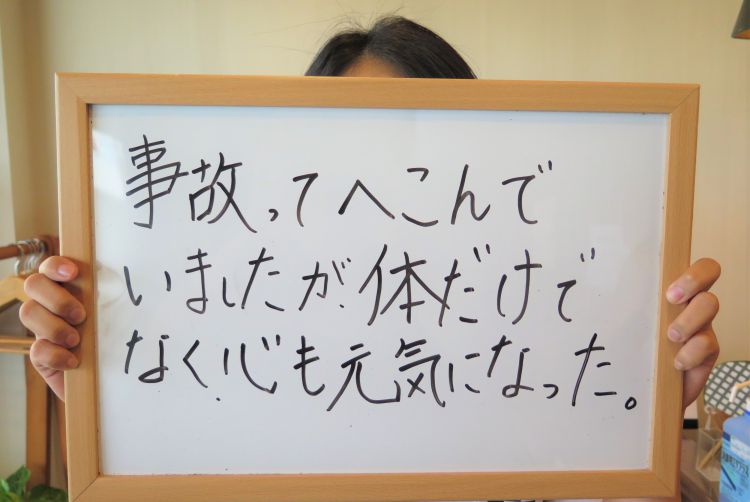 事故ってへこんで
いましたが、体だけで
なく、心も元気になった。